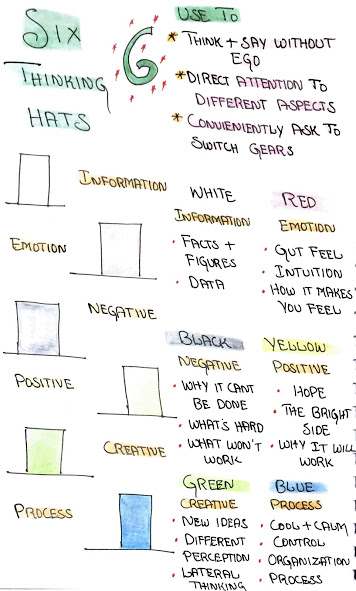 SIX
THINKING
HATS
6
USE TO
* THINK + SAY WITHOUT
EGO
* DIRECT ATTENTION TO
DIFFERENT ASPECTS
* CONVENIENTLY ASK TO
SWITCH GEARS
INFORMATION
EMOTION
NEGATIVE
POSITIVE
CREATIVE
PROCESS
WHITE
INFORMATION
• FACTS +
FIGURES
• DATA
RED
EMOTION
• GUT FEEL
• INTUITION
• HOW IT MAKES
YOU FEEL
BLACK
NEGATIVE
• WHY IT CANT
BE DONE
• WHAT'S HARD
• WHAT WON'T
WORK
YELLOW
POSITIVE
• HOPE
• THE BRIGHT
SIDE
• WHY IT WILL
WORK
GREEN
CREATIVE
• NEW IDEAS
• DIFFERENT
PERCEPTION
• LATERAL
THINKING
BLUE
PROCESS
• COOL + CALM
• CONTROL
• ORGANIZATION
• PROCESS